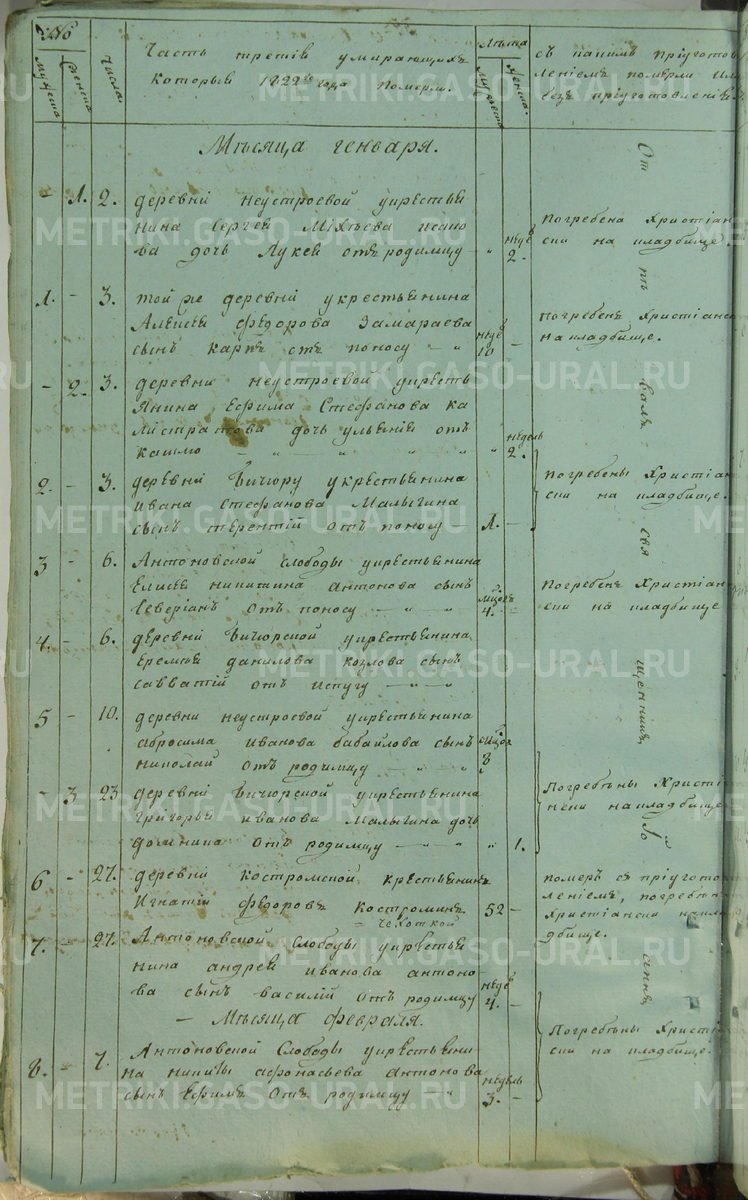 Часть третія умирающихъ
которыя 1822го года померли.
Лѣта
съ какимъ пріугото
леніемъ померли или
безъ пріуготовленія
Числа
Мѣсяца генваря.
- 1. 2. деревни неустроевой укрестья
нина Сергея
ва дочь Лукея отъ родимцу - "
недѣ
2.
Погребена Христіан
ски на кладбище.
1. - 3. той же деревни укрестьянина
Алексея Федорова Замараева
сынъ карпъ отъ поносу - "
недѣ
10 -
Погребенъ Христіанс
на кладбище.
- 2. 3. деревни неустроевой укресть
янина Ефима Стефанова ка
листратова дочь ульянія отъ
кашлю - " - "
недель
2.
2. - 3. деревни Бичюру укрестьянина
ивана Стефанова Малыгина
сынъ терентій отъ поносу - 1. -
Погребены Христіан
ски на кладбище.
3 - 6. Антоновской слободы укрестьянина
Елисея никитина антонова сынъ
Северіанъ отъ поносу - " - "
4.
Погребенъ Христіан
ски на кладбище
4. - 6. деревни Бичюрской укрестьянина
еремея данилова козлова сынъ
савватій отъ испугу
5 - 10. деревни неустроевой укрестьянина
абросима иванова бабаилова сынъ
николай отъ родимцу - " - "
8
- 3 23 деревни Бичюрской укрестьянина
григорья иванова Малыгина дочь
домнина отъ родимцу - " 1.
Погребены Христіа
нски на кладбище
6 - 27. деревни костромской крестьянинъ
Игнатій Федоровъ костроминъ 52 -
чехоткой
померъ съ пріугото
леніемъ, погребенъ
Христіански накла
дбище.
7. - 27. Антоновской слободы укрестья
нина андрея иванова антоно
ва сынъ василій отъ родимцу
недѣ
4. -
- Мѣсяца февраля.
8. - 7. Антоновской Слободы укрестьяни
на никиты афонасьева антонова
сынъ Ефимъ отъ родимцу - "
недель
3. -
Погребены Христіа
ски на кладбище.
METRIKI.GASO-URAL.RU